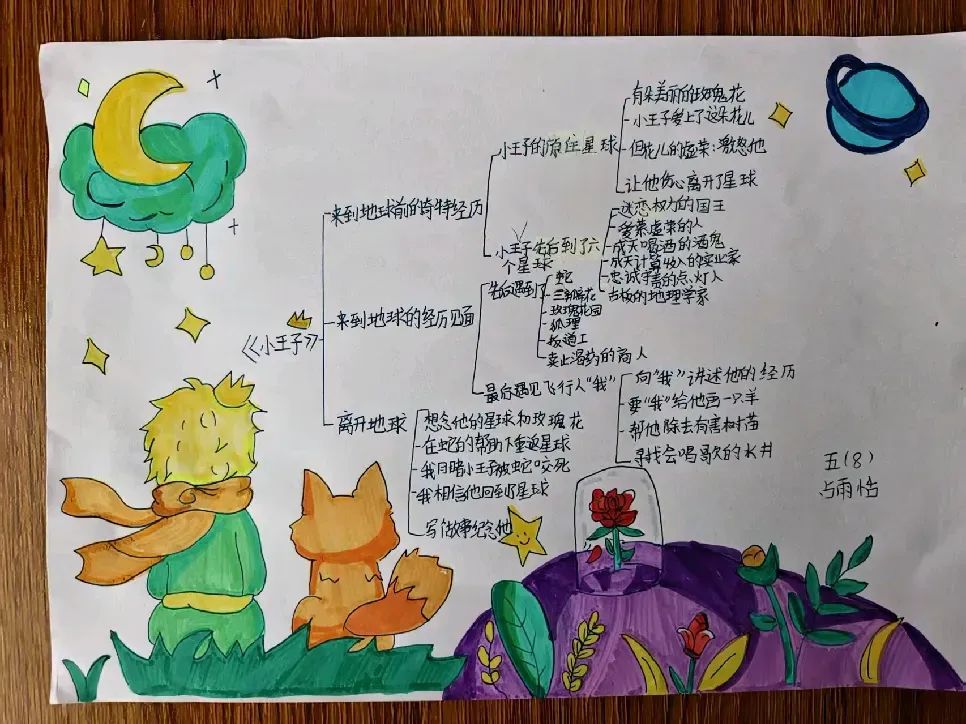 《小王子》
来到地球前的奇特经历
小王子的原住星球
有朵美丽的玫瑰花
小王子爱上了这朵花儿
但花儿的虚荣激怒他
让他伤心离开了星球
小王子先后到了六
个星球
迷恋权力的国王
爱慕虚荣的人
成天喝酒的酒鬼
成天计算收入的实业家
忠诚守需的点灯人
古板的地理学家
来到地球的经历见面
先后遇到了
蛇
三瓣花
玫瑰花园
狐理
扳道工
卖止渴药的商人
最后遇见飞行人“我”
向“我”讲述他的经历
要“我”给他画一只羊
帮他除去有害树苗
寻找会唱歌的水井
离开地球
想念他的星球和玫瑰花
在蛇的帮助下重返星球
我目睹小王子被蛇咬死
我相信他回到了星球
写故事纪念他
五(8)
占雨恬